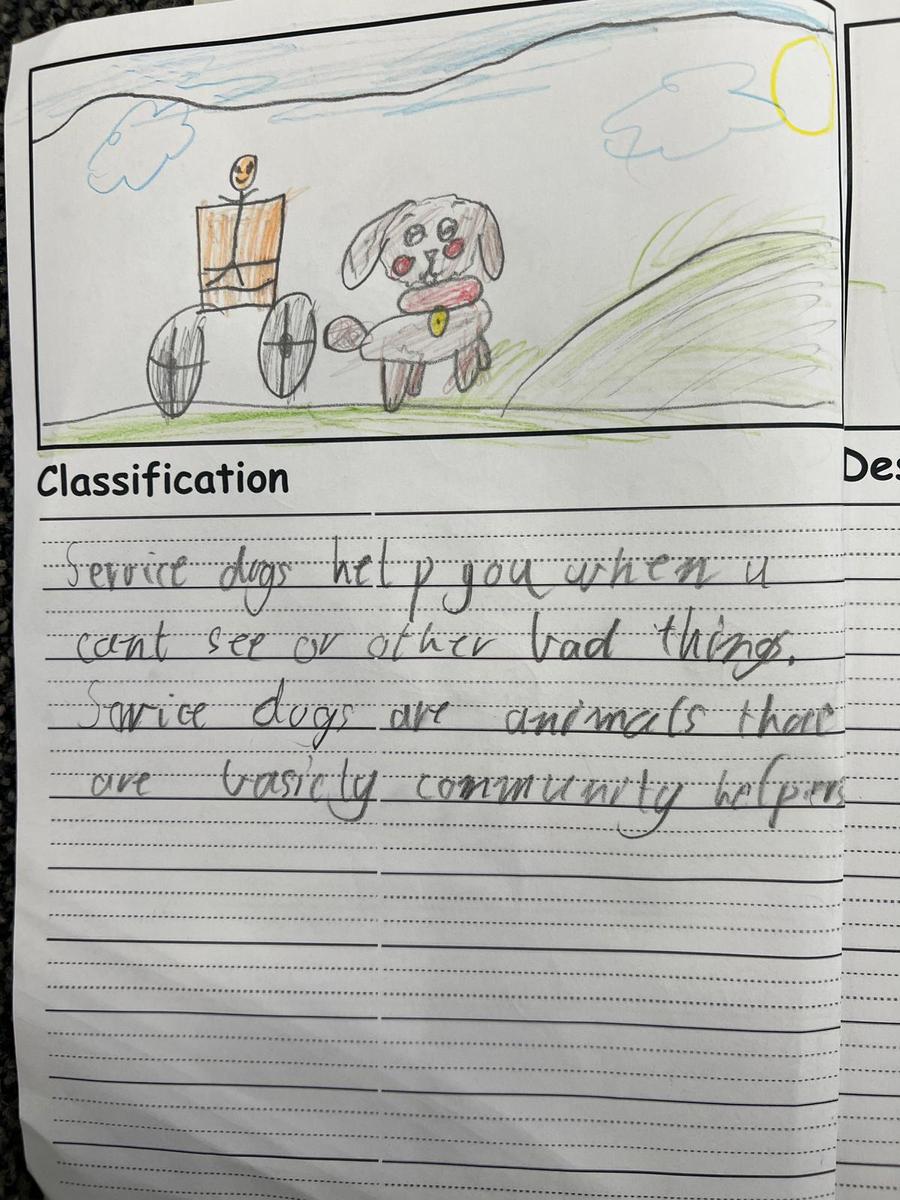 Classification
Des
Service dogs help you when u
cant see or other bad things.
Service dogs are animals that
are basicly community helpers